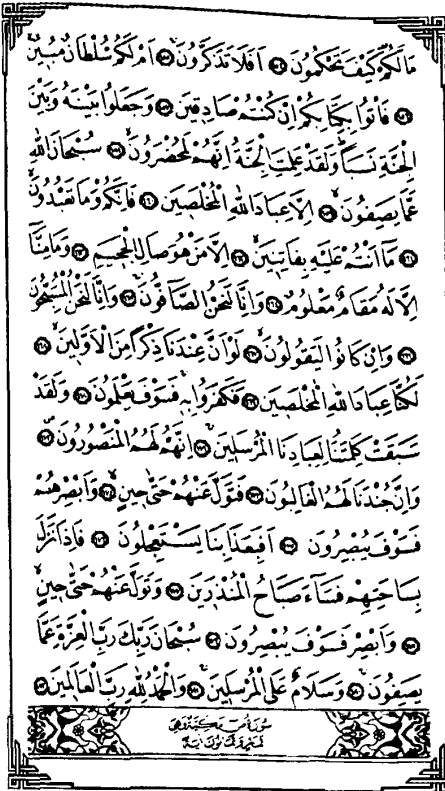 مَا لَكُمْ كَيْفَ تَحْكُمُونَ ﴿١٥٤﴾ اَفَلَا تَذَكَّرُونَ ﴿١٥٥﴾ اَمْ لَكُمْ سُلْطَانٌ مُبِينٌ
﴿١٥٦﴾ فَأْتُوا بِكِتَابِكُمْ اِنْ كُنْتُمْ صَادِقِينَ ﴿١٥٧﴾ وَجَعَلُوا بَيْنَهُ وَبَيْنَ
الْجِنَّةِ نَسَبًا وَلَقَدْ عَلِمَتِ الْجِنَّةُ اِنَّهُمْ لَمُحْضَرُونَ ﴿١٥٨﴾ سُبْحَانَ اللّٰهِ
عَمَّا يَصِفُونَ ﴿١٥٩﴾ اِلَّا عِبَادَ اللّٰهِ الْمُخْلَصِينَ ﴿١٦٠﴾ فَاِنَّكُمْ وَمَا تَعْبُدُونَ
﴿١٦١﴾ مَا اَنْتُمْ عَلَيْهِ بِفَاتِنِينَ ﴿١٦٢﴾ اِلَّا مَنْ هُوَ صَالِ الْجَحِيمِ ﴿١٦٣﴾ وَمَا مِنَّا
اِلَّا لَهُ مَقَامٌ مَعْلُومٌ ﴿١٦٤﴾ وَاِنَّا لَنَحْنُ الصَّافُّونَ ﴿١٦٥﴾ وَاِنَّا لَنَحْنُ الْمُسَبِّحُونَ
﴿١٦٦﴾ وَاِنْ كَانُوا لَيَقُولُونَ ﴿١٦٧﴾ لَوْ اَنَّ عِنْدَنَا ذِكْرًا مِنَ الْاَوَّلِينَ ﴿١٦٨﴾
لَكُنَّا عِبَادَ اللّٰهِ الْمُخْلَصِينَ ﴿١٦٩﴾ فَكَفَرُوا بِهِ فَسَوْفَ يَعْلَمُونَ ﴿١٧٠﴾ وَلَقَدْ
سَبَقَتْ كَلِمَتُنَا لِعِبَادِنَا الْمُرْسَلِينَ ﴿١٧١﴾ اِنَّهُمْ لَهُمُ الْمَنْصُورُونَ ﴿١٧٢﴾
وَاِنَّ جُنْدَنَا لَهُمُ الْغَالِبُونَ ﴿١٧٣﴾ فَتَوَلَّ عَنْهُمْ حَتّٰى حِينٍ ﴿١٧٤﴾ وَاَبْصِرْهُمْ
فَسَوْفَ يُبْصِرُونَ ﴿١٧٥﴾ اَفَبِعَذَابِنَا يَسْتَعْجِلُونَ ﴿١٧٦﴾ فَاِذَا نَزَلَ
بِسَاحَتِهِمْ فَسَاءَ صَبَاحُ الْمُنْذَرِينَ ﴿١٧٧﴾ وَتَوَلَّ عَنْهُمْ حَتّٰى حِينٍ
﴿١٧٨﴾ وَاَبْصِرْ فَسَوْفَ يُبْصِرُونَ ﴿١٧٩﴾ سُبْحَانَ رَبِّكَ رَبِّ الْعِزَّةِ عَمَّا
يَصِفُونَ ﴿١٨٠﴾ وَسَلَامٌ عَلَى الْمُرْسَلِينَ ﴿١٨١﴾ وَالْحَمْدُ لِلّٰهِ رَبِّ الْعَالَمِينَ ﴿١٨٢﴾
سُورَةُ ص مَكِّيَّةٌ وَهِيَ